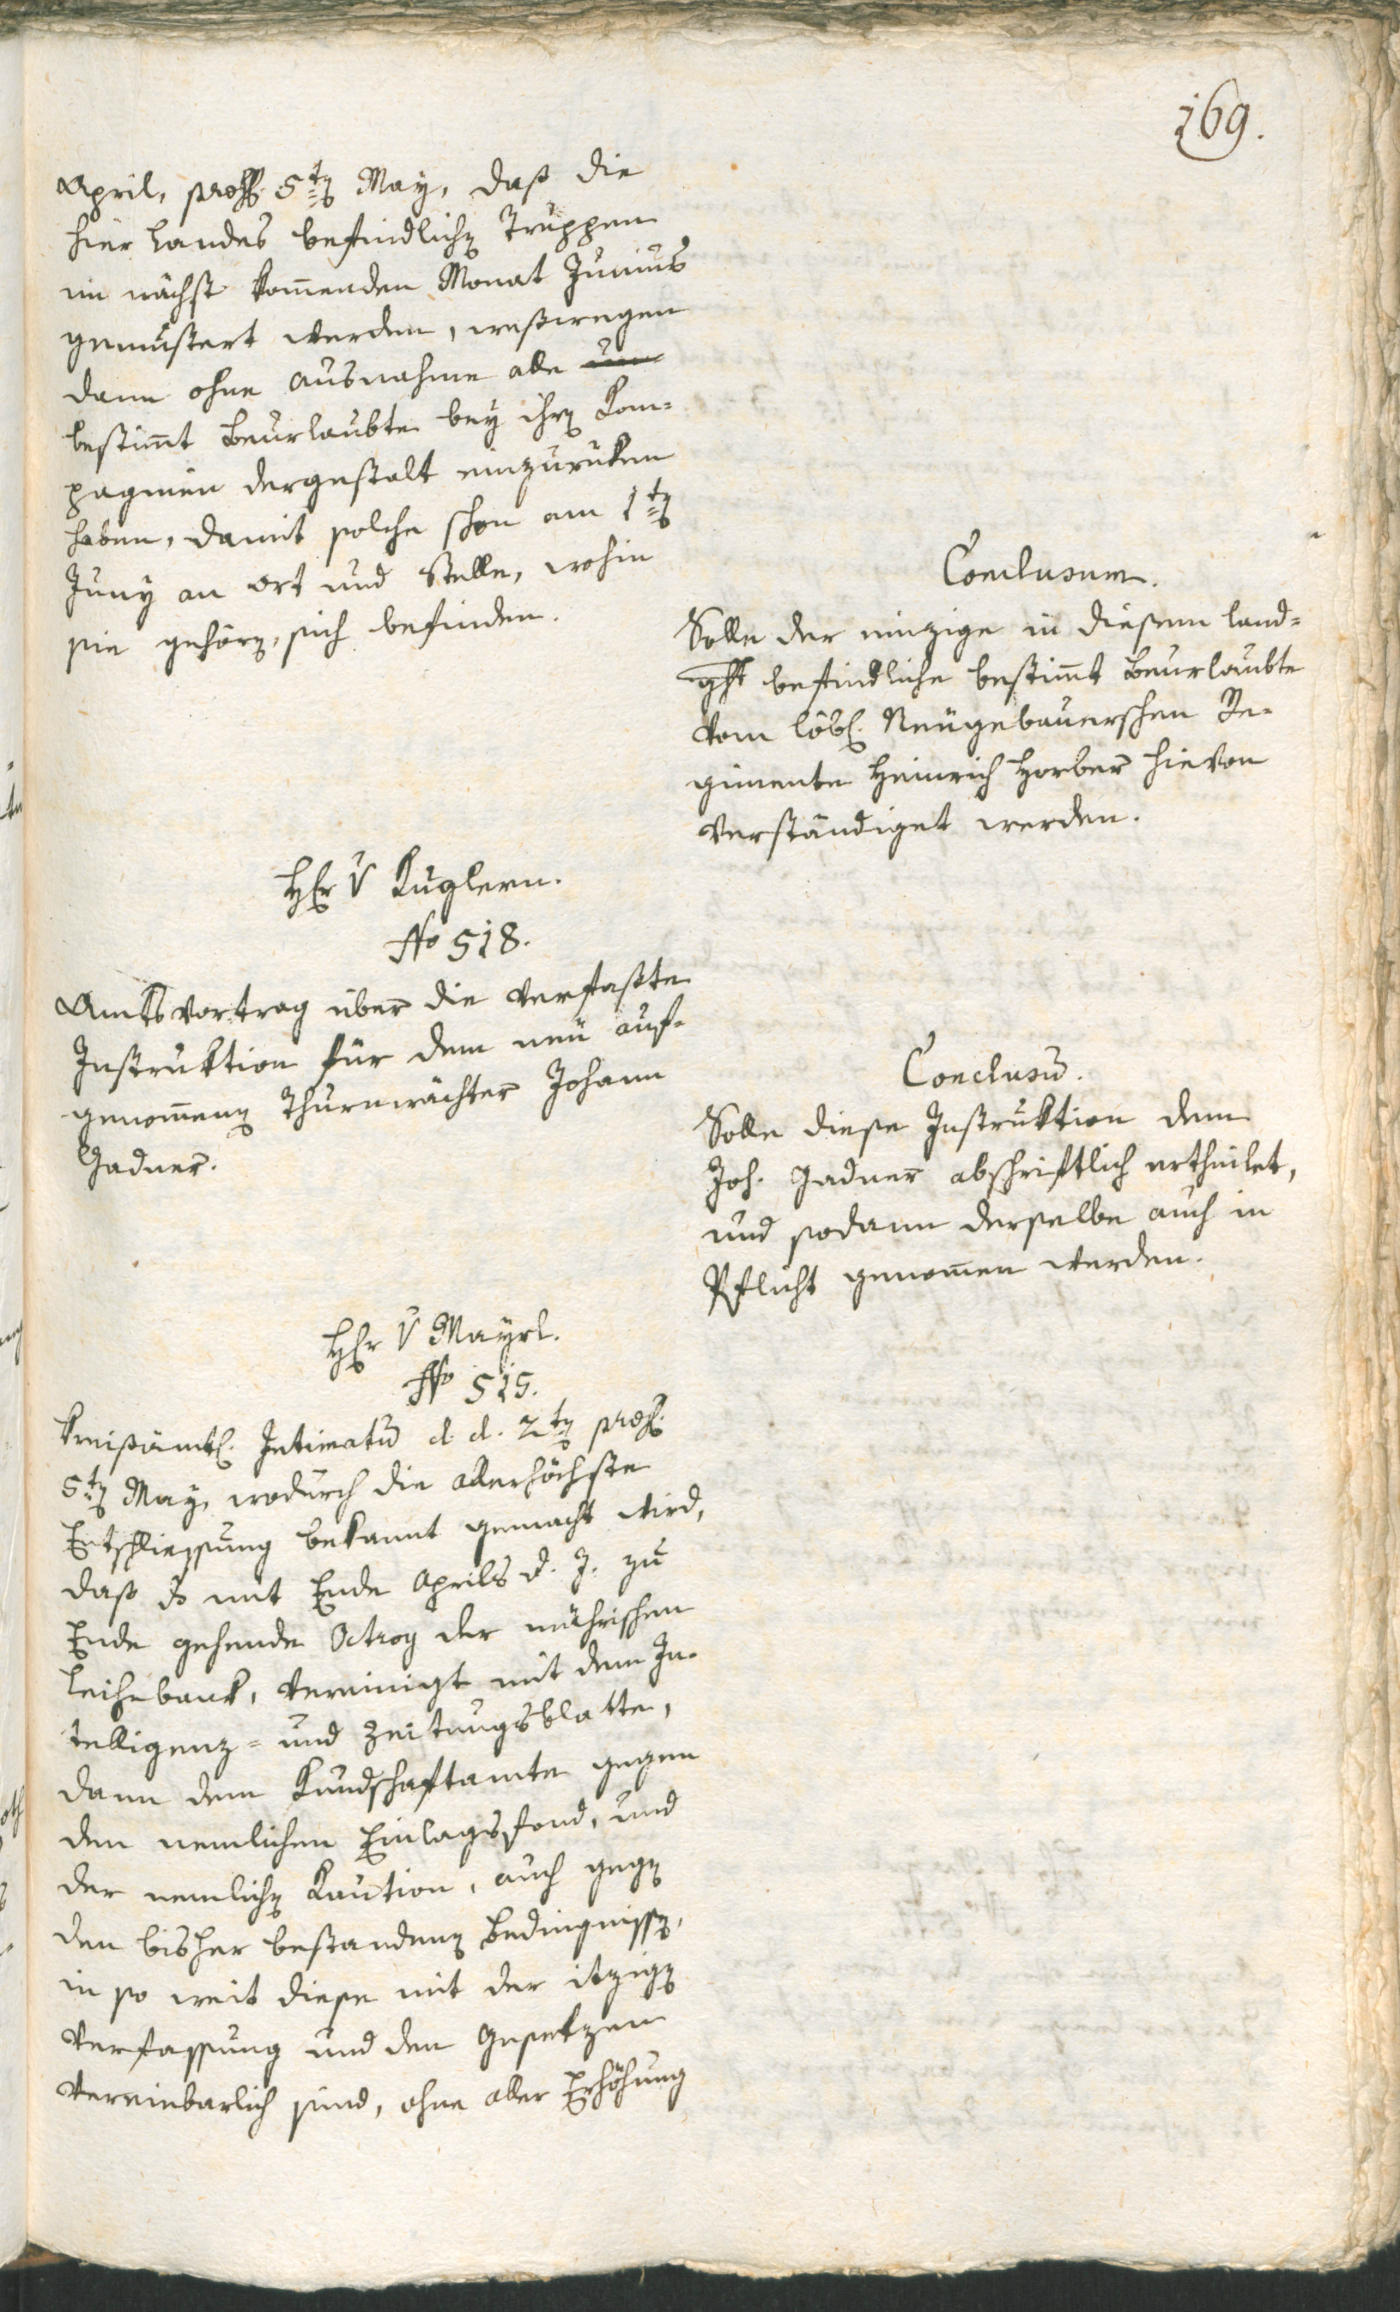 169.
April, praes. 5ten May, daß die
hier Landes befindlichen Truppen
im nächst kommenden Monat Junius
gemustert werden, westwegen
dann ohne Ausnahme alle
bestimmt Beurlaubte bey ihren Kom=
pagnien dergestalt einzurüken
haben, damit solche schon am 1ten
Juny an Ort und Stelle, wohin
sie gehören, sich befinden.
Conclusum.
Solle der einzige in diesem Land=
ght befindliche bestimmt Beurlaubte
vom löbl. Neugebauerschen Re=
gimente Heinrich Horber hievon
verständiget werden.
Hr v Kuglern.
No 518.
Amtsvortrag über die verfaßte
Instruktion für dem neu auf=
genommenen Thurnwächter Johann
Gadner.
Conclusum.
Solle diese Instruktion dem
Joh. Gadner abschriftlich ertheilet,
und sodann derselbe auch in
Pflicht genommen werden.
Hr v Mayrl.
No 515.
Kreisämtl. Intimatum d. d. 2ten praes.
5ten May, wodurch die allerhöchste
Entschliessung bekannt gemacht wird,
daß die mit Ende Aprils d. J. zu
Ende gehende Octroy der mährischen
Leihebank, vereinigt mit dem In=
telligenz= und Zeitungsblatte,
dann dem Kundschaftamte gegen
den nemlichen Einlagsfond, und
der nemlichen Kaution, auch gegen
den bisher bestandenen Bedingnissen,
in so weit diese mit der itzigen
Verfassung und den Gesetzen
vereinbarlich sind, ohne aller Erhöhung